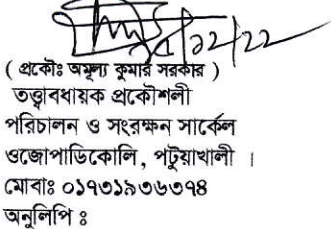 ১৫/১২/২২
( প্রকৌঃ অমূল্য কুমার সরকার )
তত্ত্বাবধায়ক প্রকৌশলী
পরিচালন ও সংরক্ষন সার্কেল
ওজোপাডিকোলি, পটুয়াখালী ।
মোবাঃ ০১৭৩১৯৩৬৩৭৪
অনুলিপি ঃ